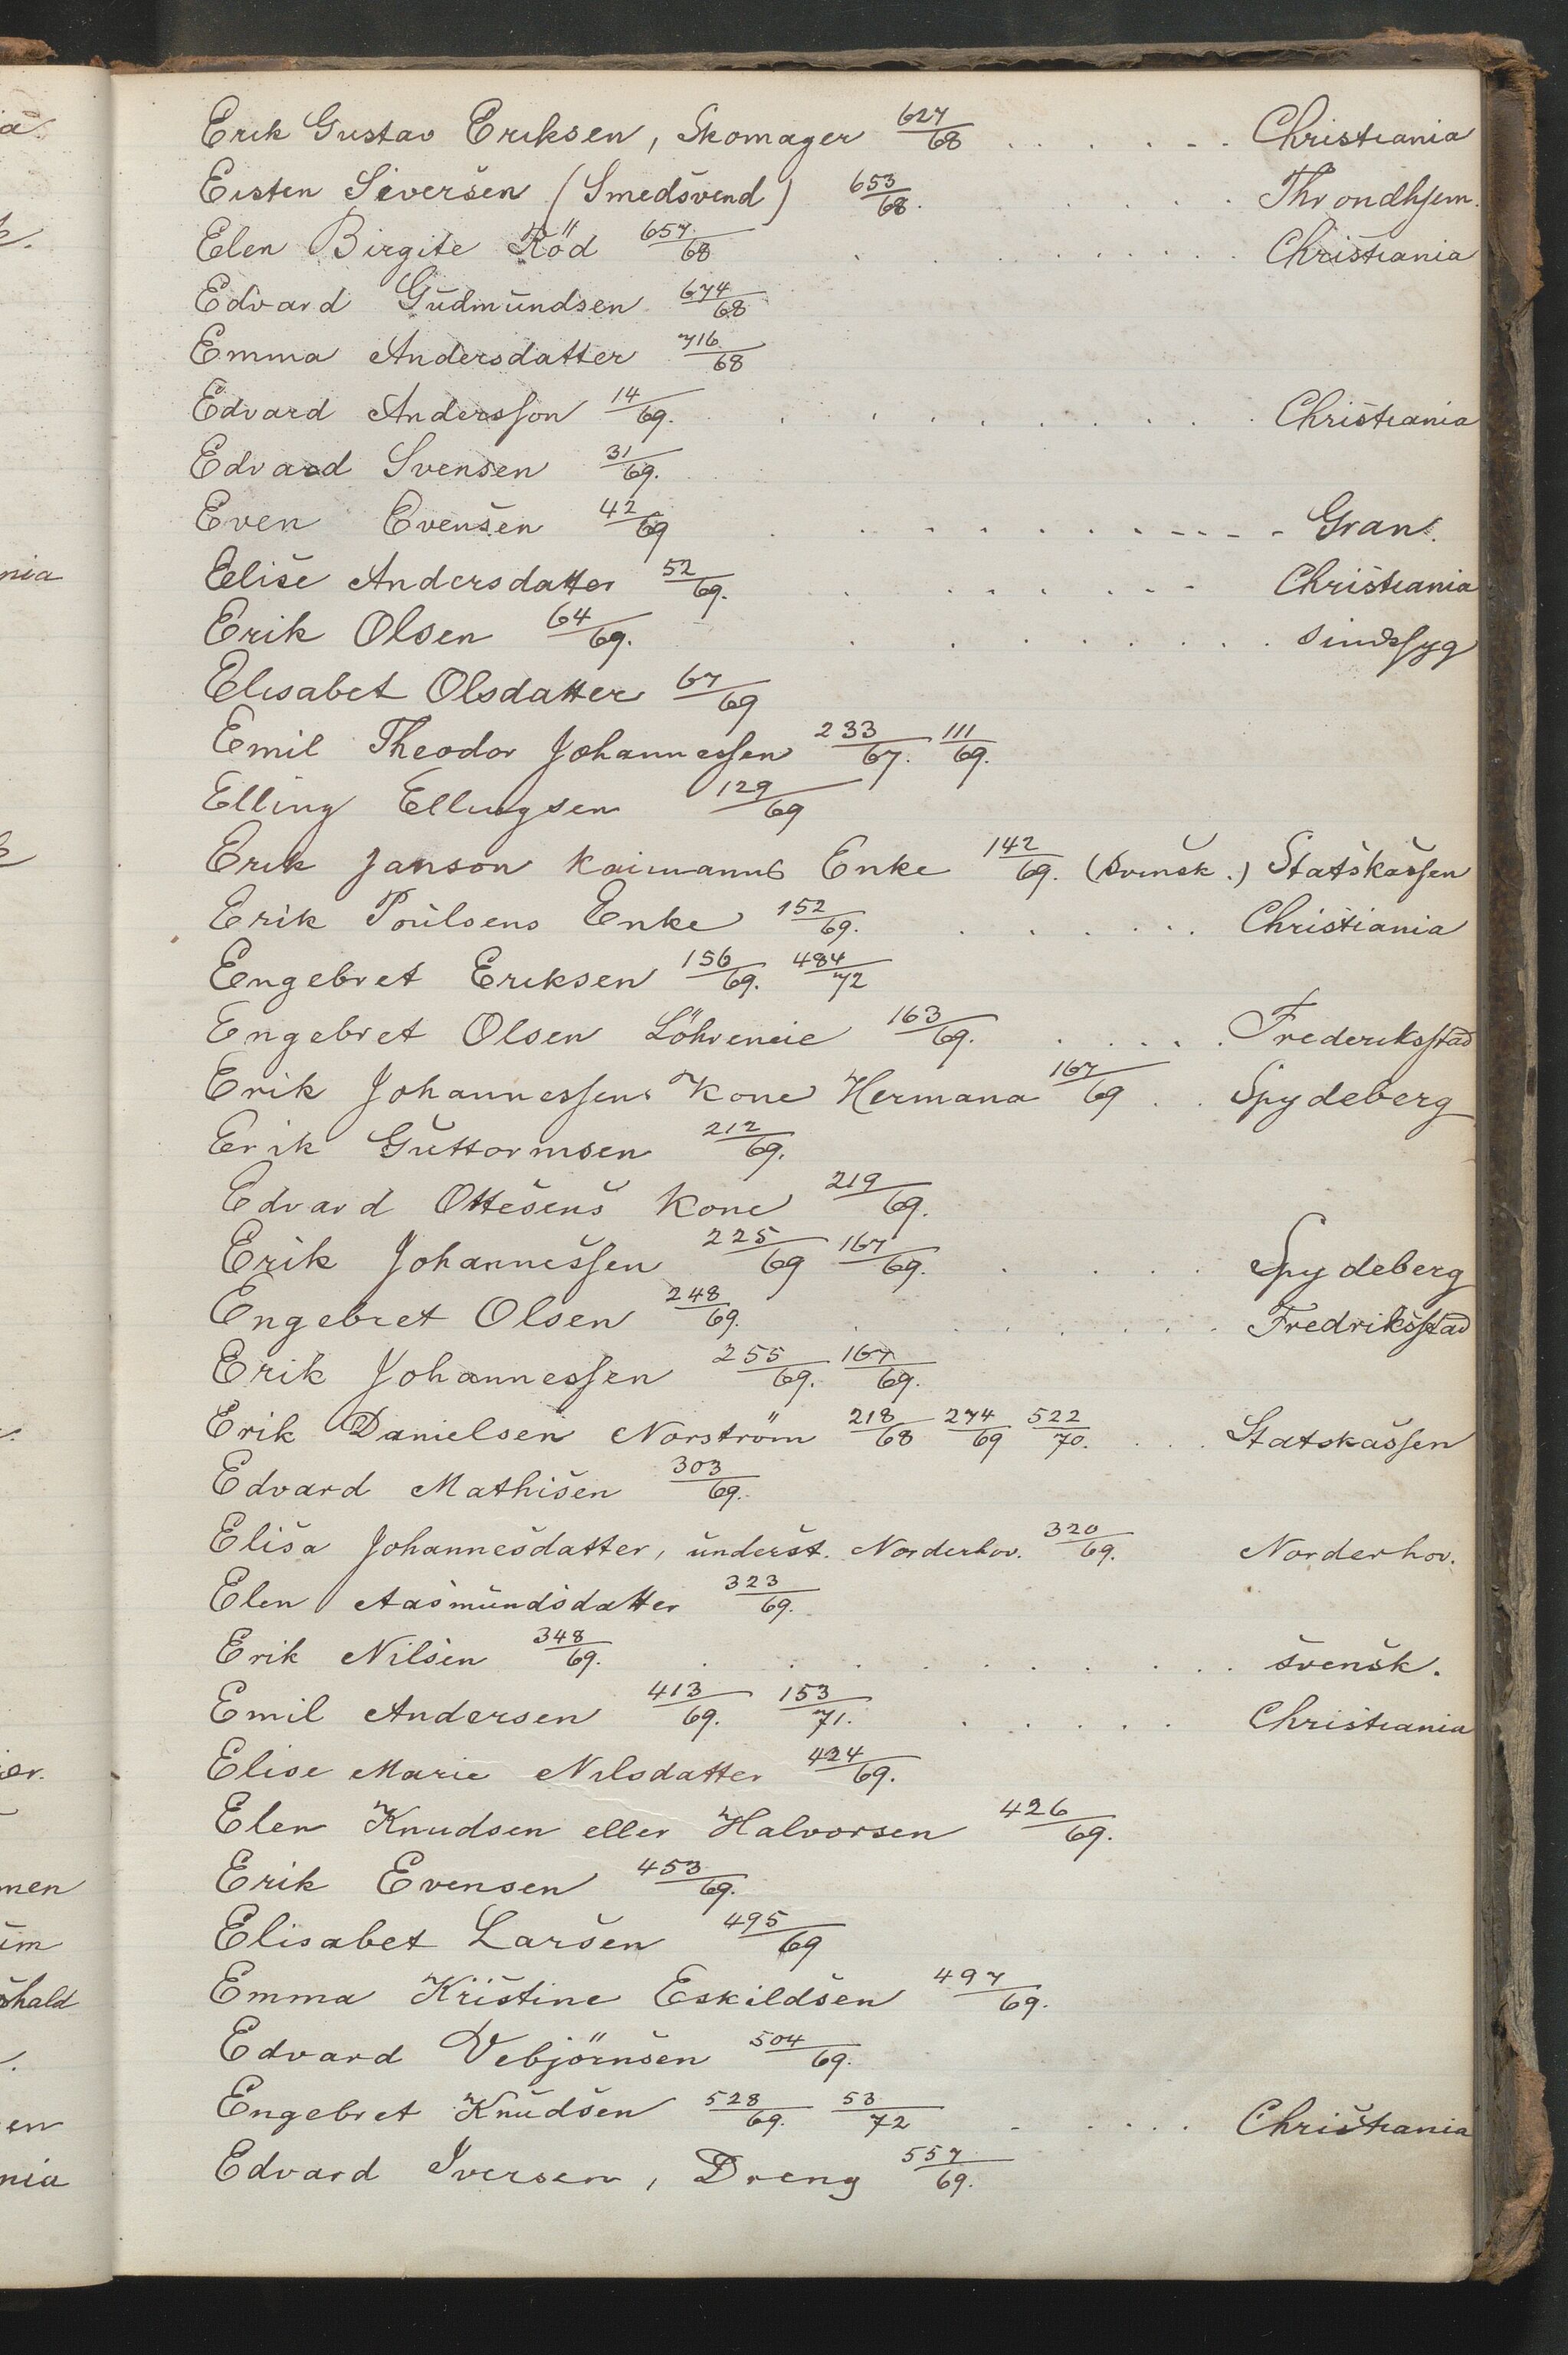 Erik Gustav Eriksen, Skomager 627/68 . . . . - - . Christiania
Eisten Siversen (Smedsvend) 653/68. . . . . . Throndhjem.
Elen Birgite Röd 657/68 . . . . . . . . . Christiania
Edvard Gudmundsen 674/68
Emma Andersdatter 716/68
Edvard Andersson 14/69. . . . . . . . . Christiania
Edvard Svensen 31/69.
Even Evensen 42/69 . . . . . . - - - - Gran.
Elise Andersdatter 52/69. . . . . . . - Christiania
Erik Olsen 64/69. . . . . . . . . sindssyg
Elisabet Olsdatter 67/69
Emil Theodor Johannessen 233/67. 111/69.
Elling Ellingsen 129/69
Erik Janson Kaimanns Enke 142/69. (svensk.) Statskassen
Erik Poulsens Enke 152/69. . . . . . Christiania
Engebret Eriksen 156/69. 484/72
Engebret Olsen Löhreneie 163/69. . . . . . Frederiksstad
Erik Johannessens Kone Hermana 167/69 . . Spydeberg
Erik Guttormsen 212/69.
Edvard Ottesens Kone 219/69.
Erik Johannessen 225/69 167/69. . . . . . Spydeberg
Engebret Olsen 248/69. . . . . . . . Fredriksstad
Erik Johannessen 255/69. 167/69.
Erik Danielsen Norström 218/68 274/69 522/70. . . . Statskassen
Edvard Mathisen 303/69.
Elisa Johannesdatter, underst. Norderhov. 320/69. Norderhov.
Elen Aasmundsdatter 323/69.
Erik Nilsen 348/69. . . . . . . . . . svensk.
Emil Andersen 413/69. 153/71. . . . . . Christiania
Elise Marie Nilsdatter 424/69.
Elen Knudsen eller Halvorsen 426/69.
Erik Evensen 453/69.
Elisabet Larsen 495/69
Emma Kristine Eskildsen 497/69.
Edvard Vebjörnsen 504/69.
Engebret Knudsen 528/69. 53/72 - . . . . Christiania
Edvard Iversen, Dreng 557/69.